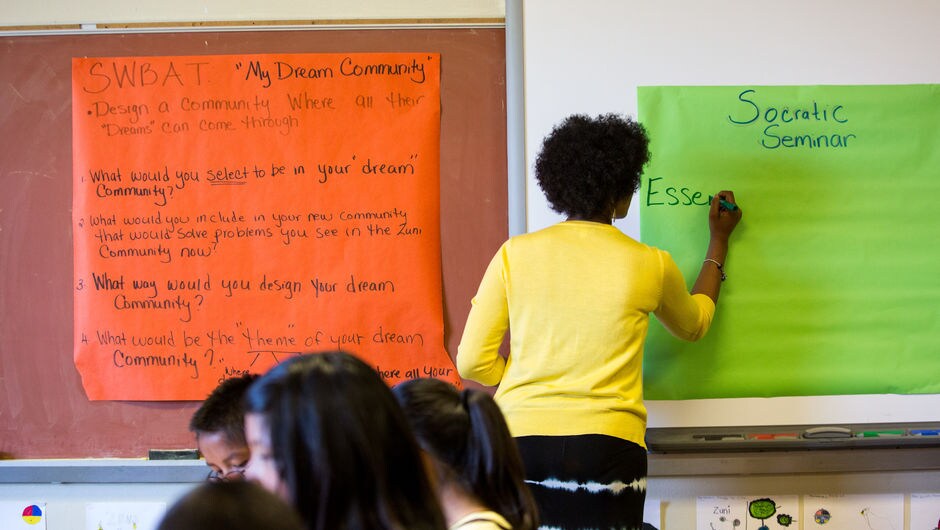 SWBAT: "My Dream Community"
• Design a Community Where all their
"Dreams" can come through
1. What would you select to be in your "dream"
Community?
2. What would you include in your new community
that would solve problems you see in the Zuni
Community now?
3. What way would you design your dream
Community?
4. What would be the "theme" of your dream
Community?
"Where
here all your
Socratic
Seminar
Esse
Zuni